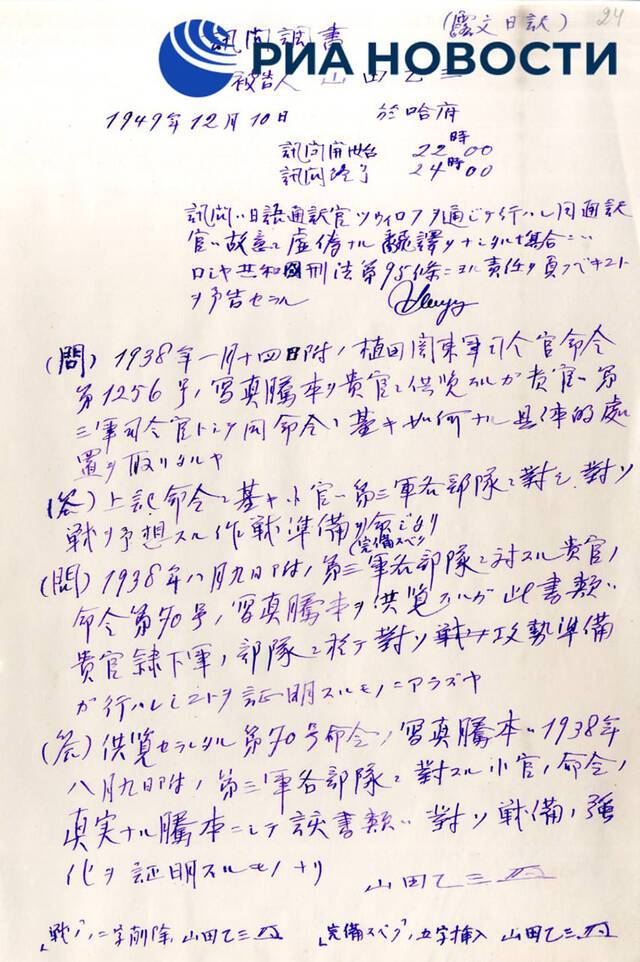 (露文日訳) 24
訊問調書
РИА НОВОСТИ
被告人 山田乙三
1949年12月10日 於哈府
訊問開始 22時00
訊問終了 24時00
訊問ハ日語通訳官ツウィロフヲ通ジテ行ハレ同通訳
官ハ故意ニ虚偽ナル飜譯ヲナシタル場合ニハ
ロシヤ共和國刑法第95條ニヨル責任ヲ負フベキコト
ヲ予告セラル
(問) 1938年一月十四日附ノ植田関東軍司令官命令
第1256号ノ写真謄本ヲ貴官ニ供覧スルガ貴官ハ第
三軍司令官トシテ同命令ニ基キ如何ナル具体的處
置ヲ取リタルヤ
(答) 上記命令ニ基キ小官ハ第三軍各部隊ニ對シ對ソ
戦ヲ予想スル作戦準備ヲ命じたり
完備スベク
(問) 1938年八月九日附ノ第三軍各部隊ニ対スル貴官ノ
命令第90号ノ写真謄本ヲ供覧スルガ此書類ハ
貴官隷下軍ノ部隊ニ於テ對ソ戦ノ攻勢準備
ガ行ハレシコトヲ証明スルモノニアラズヤ
(答) 供覧セラレタル第90号命令ノ写真謄本ハ1938年
八月九日附ノ第三軍各部隊ニ對スル小官ノ命令ノ
真実ナル謄本ニシテ該書類ハ對ソ戦備ノ強
化ヲ証明スルモノナリ
山田乙三
「戦ヲ」ノ二字削除 山田乙三 「完備スベク」ノ五字挿入 山田乙三